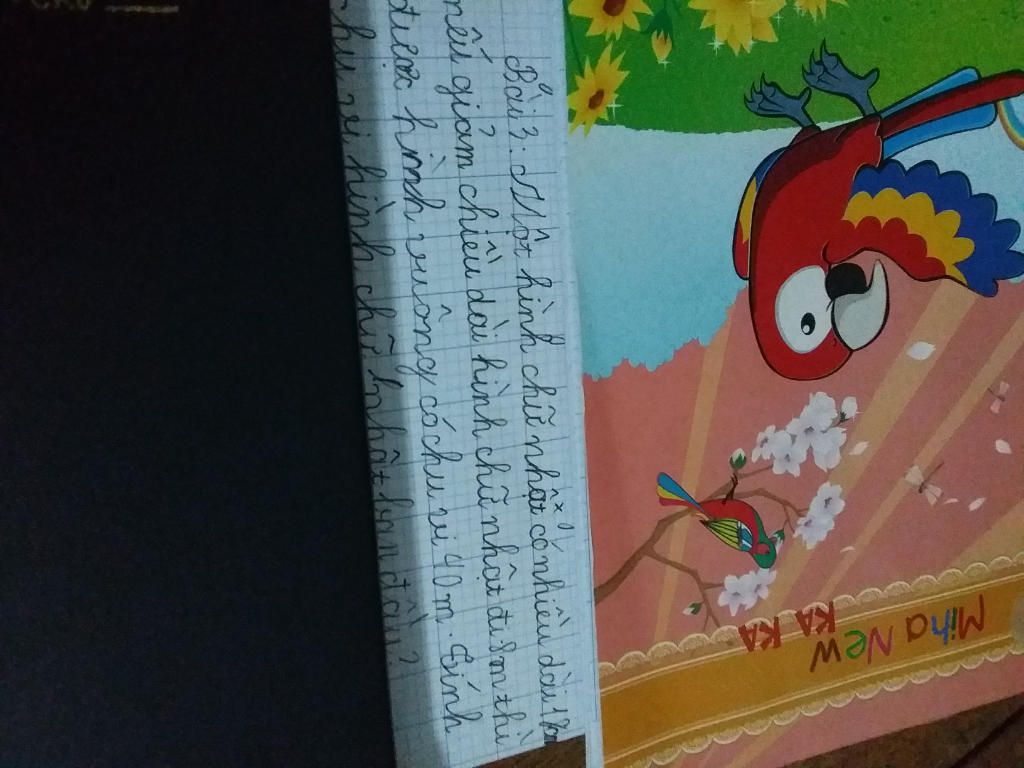 Bài 3. Một hình chữ nhật có chiều dài 18m
nếu giảm chiều dài hình chữ nhật đi 8m thì
được hình vuông có chu vi 40m. Sính
chu vi hình chữ nhật ban đầu?
Miha New
KA KA